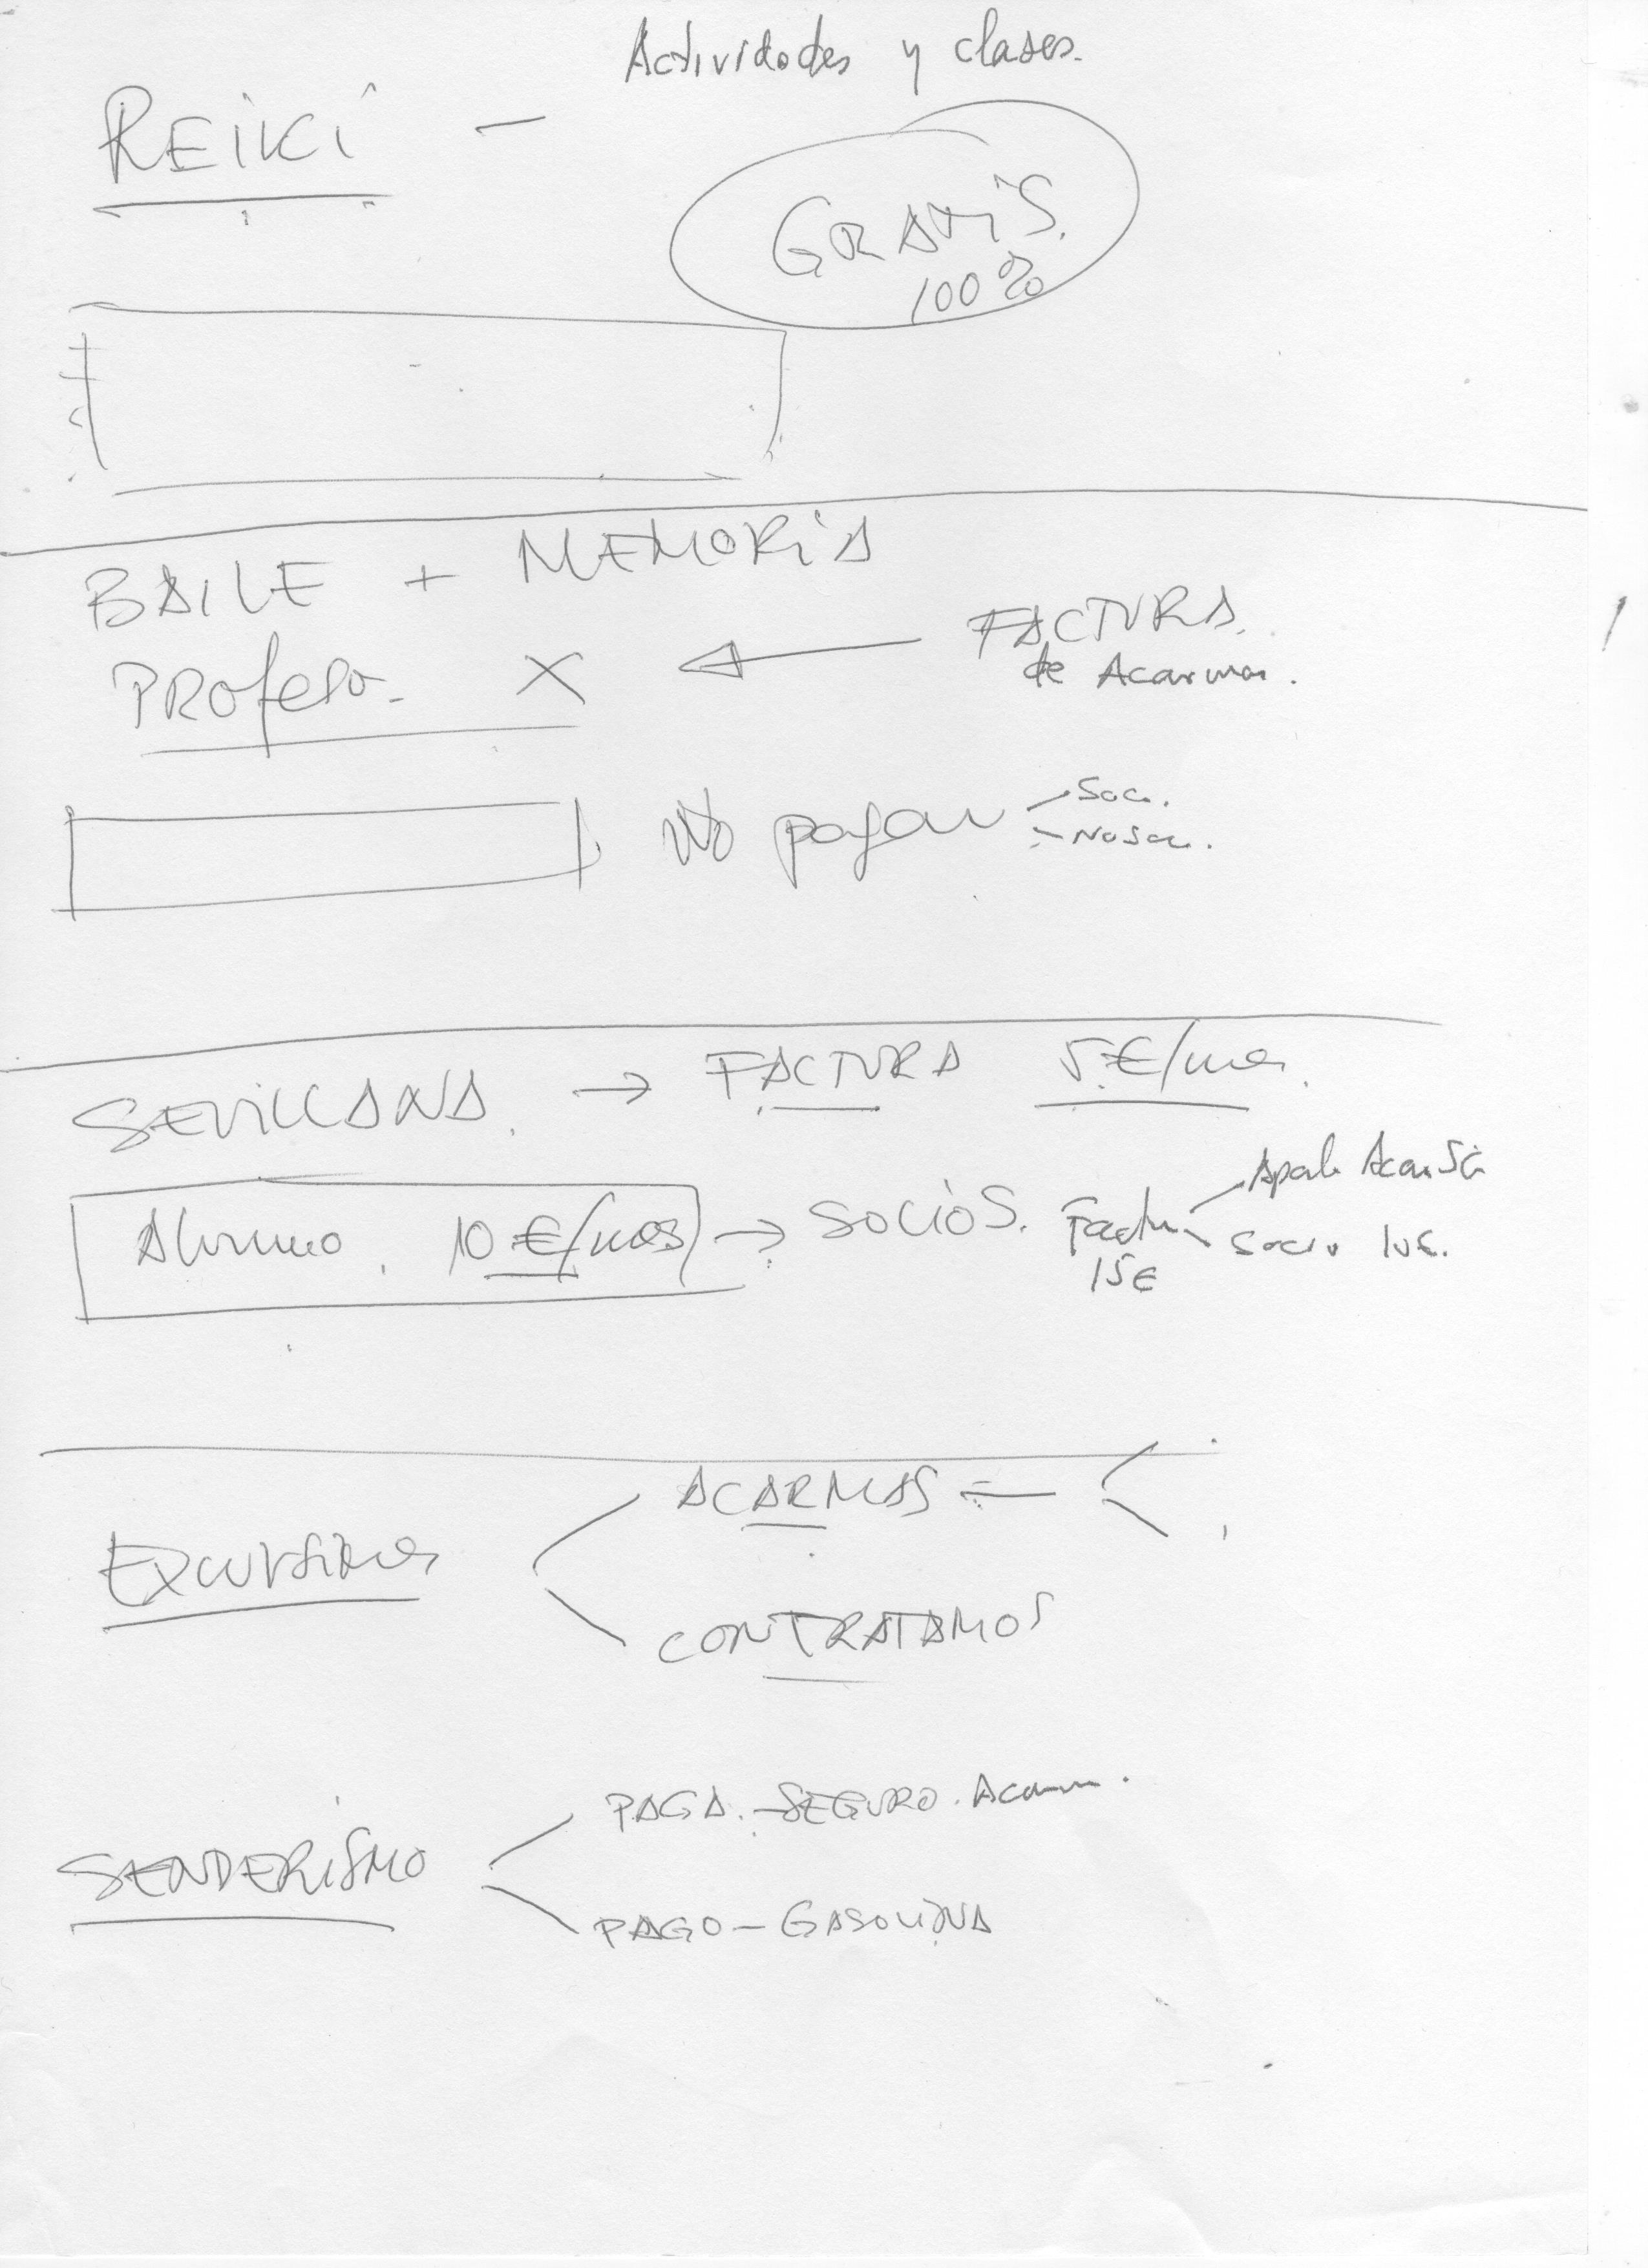 Actividades y clases.
REIKI —
GRATIS.
100%
BAILE + MEMORIA
PROfeso. X ← FACTURA.
de Acarmas.
No pagan
Soc.
No soc.
SEVILLANA. → FACTURA 5 €/mes.
Alumno. 10 €/mes → SOCIOS. Factu
15€
Socio 10€.
EXCURSIONES
ACARMAS =
CONTRATAMOS
SENDERISMO
PAGA. - SEGURO. Acarm.
PAGO - GASOLINA